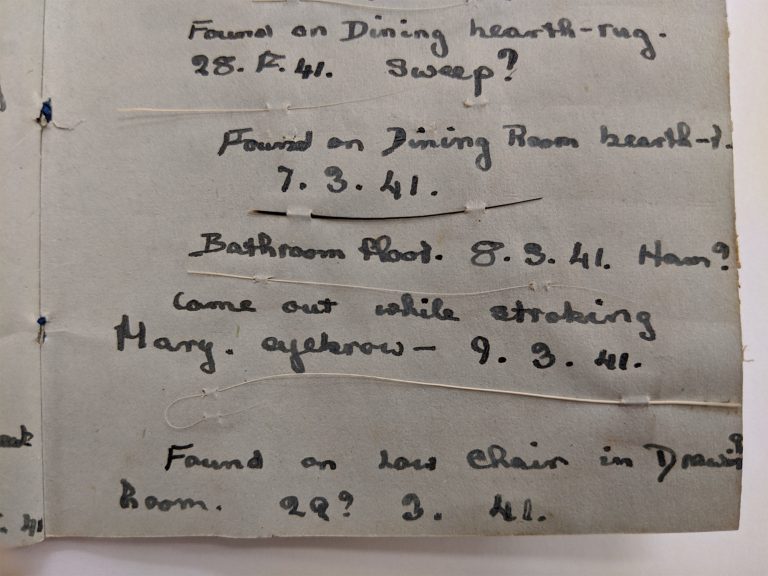 Found on Dining hearth-rug.
28. 2. 41. Sweep?
Found on Dining Room hearth-r.
7. 3. 41.
Bathroom floor. 8. 3. 41. Ham?
Came out while stroking
Mary. eyebrow - 9. 3. 41.
Found on low chair in Drawing
Room. 29? 3. 41.
41